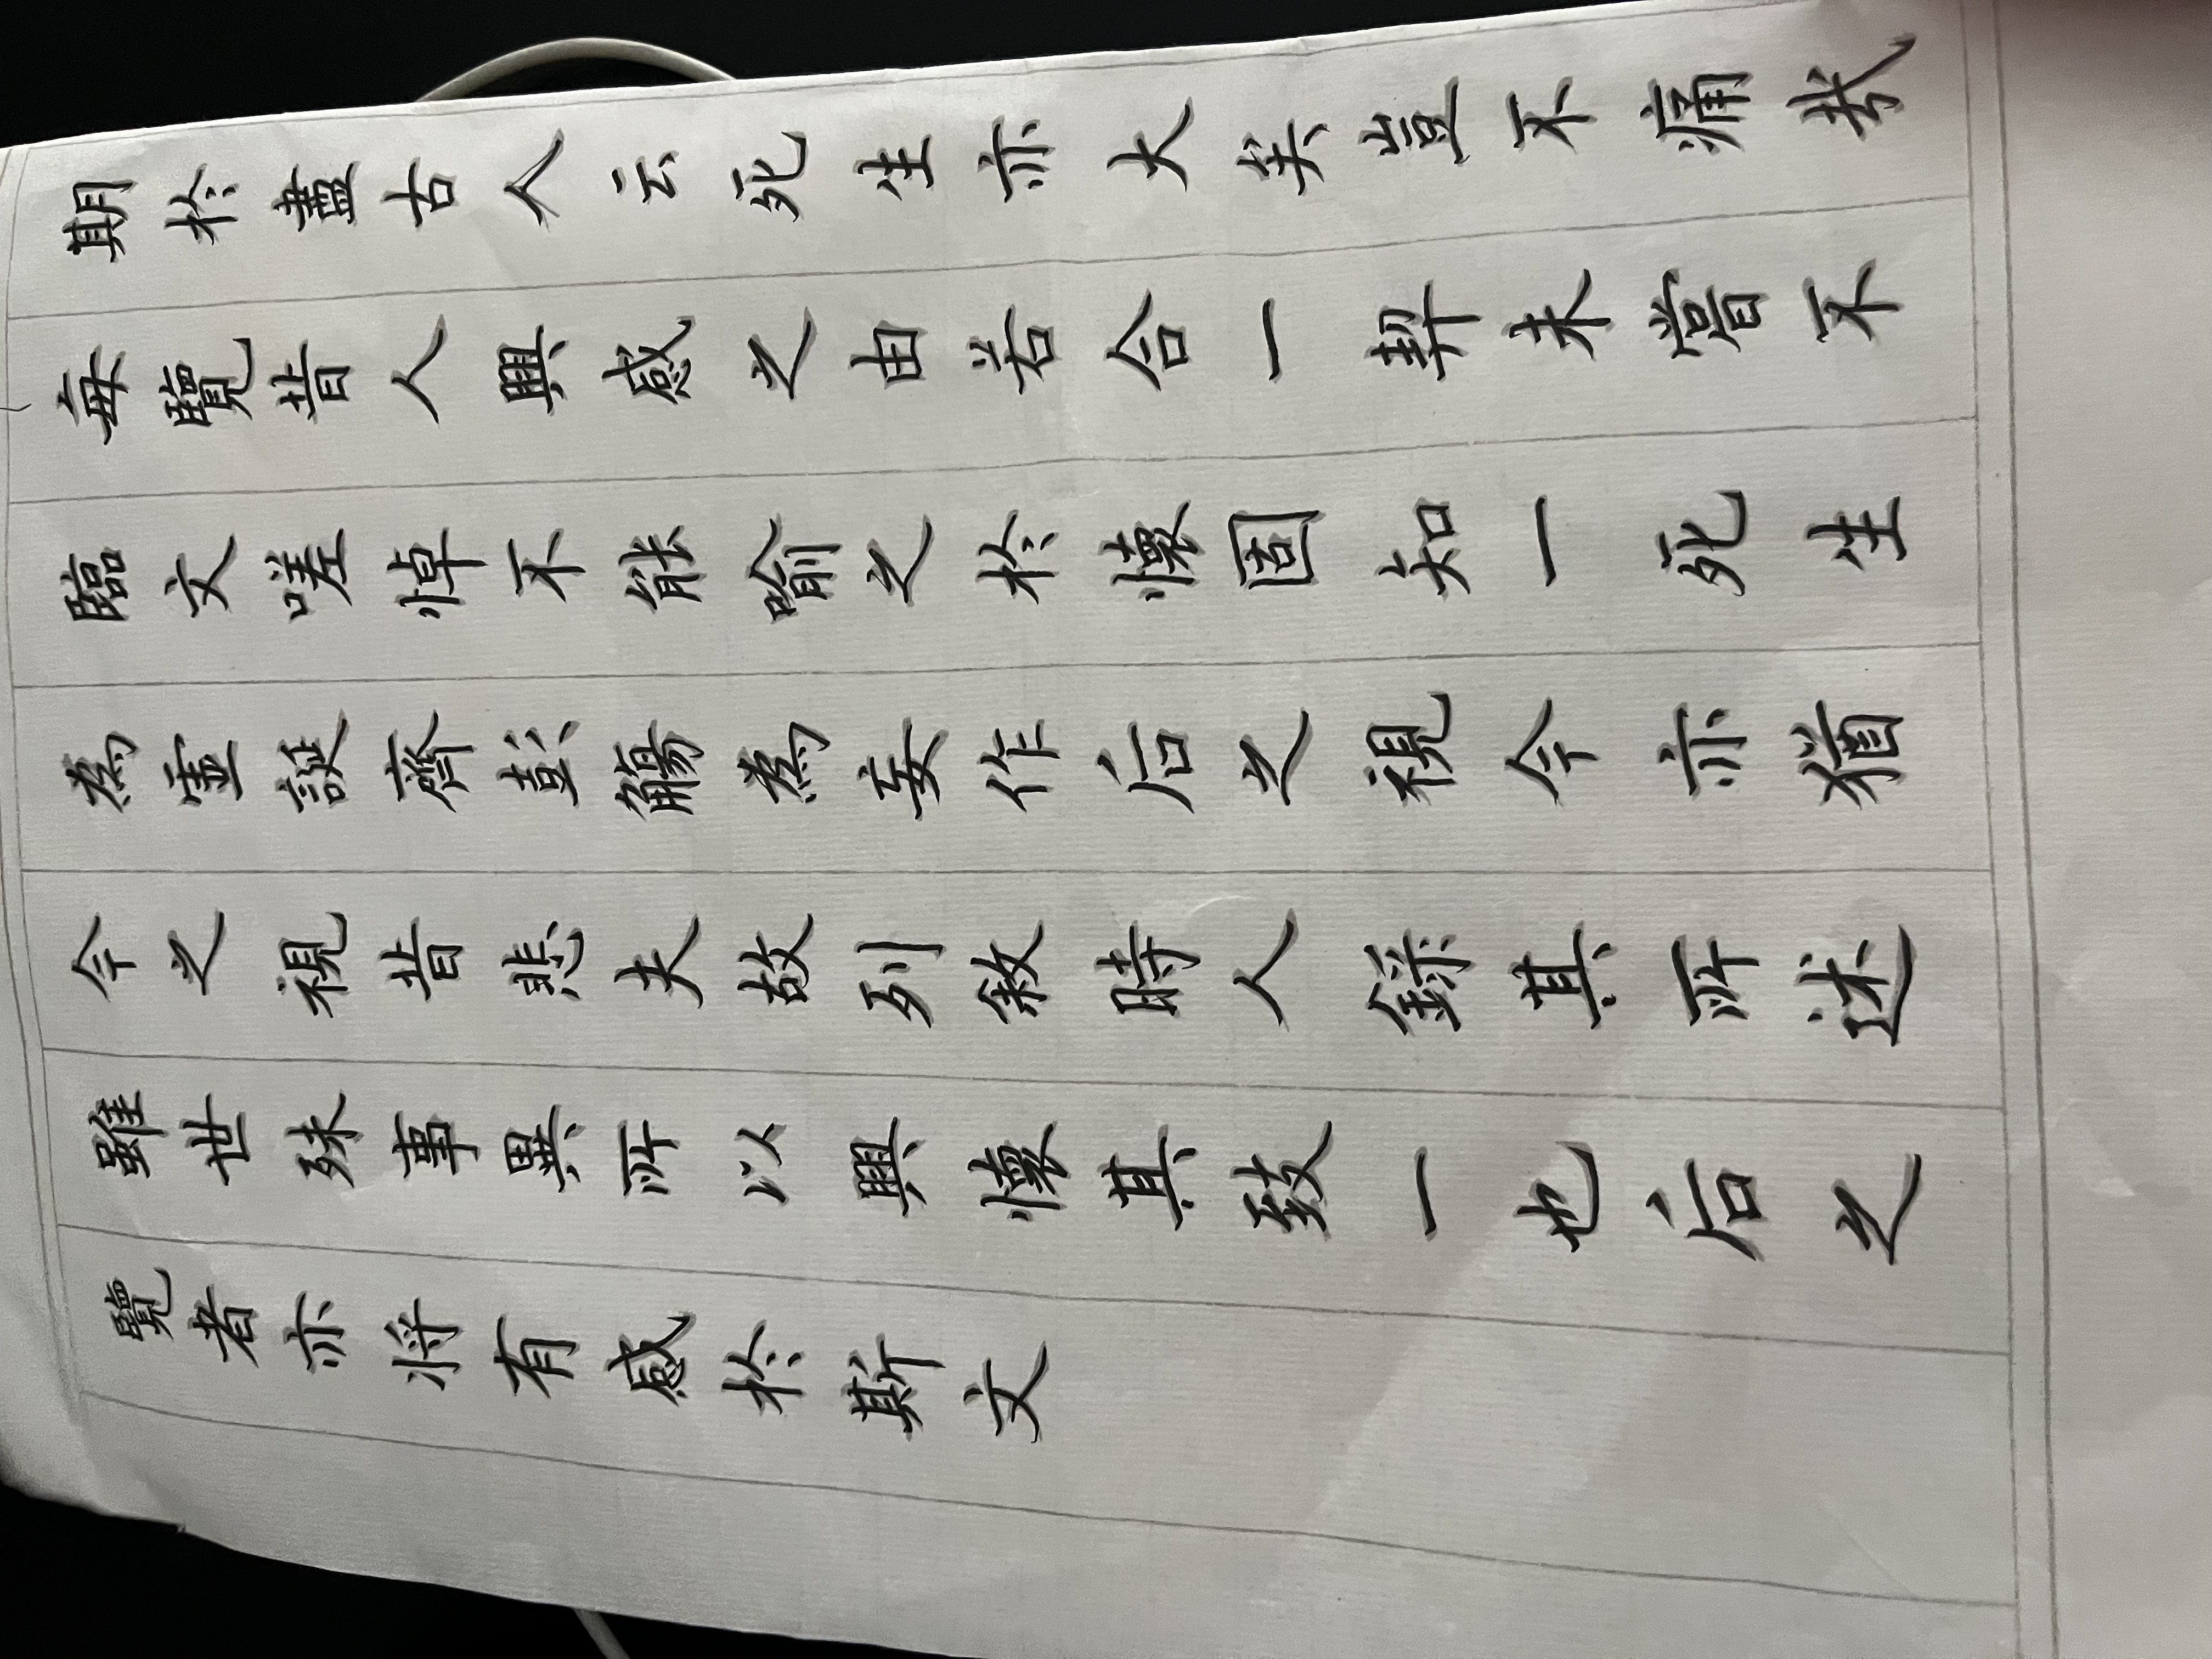 期於盡古人云死生亦大矣豈不痛哉
每覽昔人興感之由若合一契未嘗不
臨文嗟悼不能喻之於懷固知一死生
為虗誕齊彭觴為妄作后之視今亦猶
今之視昔悲夫故列敘時人錄其所述
雖世殊事異所以興懷其致一也后之
覽者亦将有感於斯文